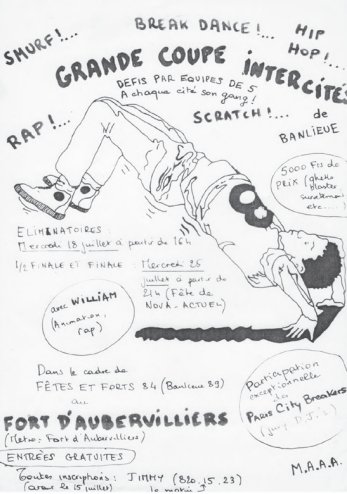 SMURF!....
BREAK DANCE!...
HIP
HOP!...
GRANDE COUPE INTERCITÉS
DEFIS PAR EQUIPES DE 5
A chaque cité son gang!
RAP!...
SCRATCH!...
de
BANLIEUE
5000 Frs de
PRIX (ghetto
blaster
survêtement
etc....)
ELIMINATOIRES:
Mercredi 18 juillet à partir de 16h
1/2 FINALE ET FINALE : Mercredi 25
juillet à partir de
21h (Fête de
NOVA-ACTUEL)
avec WILLIAM
(Animation,
rap)
Dans le cadre de
FÊTES ET FORTS 84 (Banlieue 89)
au
FORT D'AUBERVILLIERS
(Métro: Fort d'Aubervilliers)
ENTRÉES GRATUITES
Participation
exceptionnelle
des
PARIS City Breakers
(jury D.J.s)
Toutes inscriptions: JIMMY (820.15.23)
(avant le 15 juillet)
le matin
M.A.A.A.